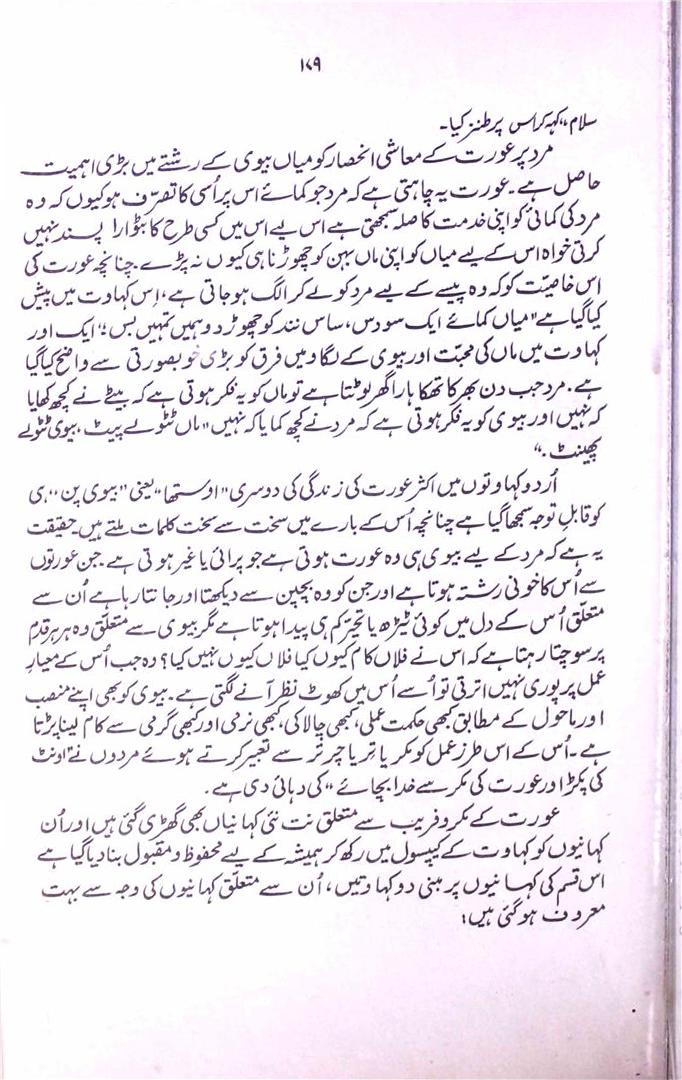 ۱۷۹
سلام،، کہہ کر اس پر طنز کیا۔
مرد پر عورت کے معاشی انحصار کو میاں بیوی کے رشتے میں بڑی اہمیت
حاصل ہے۔ عورت یہ چاہتی ہے کہ مرد جو کمائے اس پر اُسی کا تصرّف ہو کیوں کہ وہ
مرد کی کمائی کو اپنی خدمت کا صلہ سمجھتی ہے اس لیے اس میں کسی طرح کا بٹوارا پسند نہیں
کرتی خواہ اس کے لیے میاں کو اپنی ماں بہن کو چھوڑنا ہی کیوں نہ پڑے۔ چنانچہ عورت کی
اس خاصیّت کو کہ وہ پیسے کے لیے مرد کو لے کر الگ ہو جاتی ہے، اِس کہاوت میں پیش
کیا گیا ہے "میاں کمائے ایک سو دس، ساس نند کو چھوڑ دو ہمیں تمہیں بس"؛ ایک اور
کہاوت میں ماں کی محبّت اور بیوی کے لگاو میں فرق کو بڑی خوبصورتی سے واضح کیا گیا
ہے۔ مرد جب دن بھر کا تھکا ہارا گھر لوٹتا ہے تو ماں کو یہ فکر ہوتی ہے کہ بیٹے نے کچھ کھایا
کہ نہیں اور بیوی کو یہ فکر ہوتی ہے کہ مرد نے کچھ کمایا کہ نہیں "ماں ٹٹولے پیٹ، بیوی ٹٹولے
پھینٹ۔"
اُردو کہاوتوں میں اکثر عورت کی زندگی کی دوسری "اوستھا" یعنی "بیوی پن،، ہی
کو قابلِ توجہ سمجھا گیا ہے چنانچہ اُس کے بارے میں سخت سے سخت کلمات ملتے ہیں۔ حقیقت
یہ ہے کہ مرد کے لیے بیوی ہی وہ عورت ہوتی ہے جو پرائی یا غیر ہوتی ہے۔ جن عورتوں
سے اُس کا خونی رشتہ ہوتا ہے اور جن کو وہ بچپن سے دیکھتا اور جانتا رہا ہے اُن سے
متعلّق اُس کے دل میں کوئی ٹیڑھ یا تحیّر کم ہی پیدا ہوتا ہے مگر بیوی سے متعلّق وہ ہر ہر قدم
پر سوچتا رہتا ہے کہ اس نے فلاں کام کیوں کیا فلاں کیوں نہیں کیا؟ وہ جب اُس کے معیارِ
عمل پر پوری نہیں اترتی تو اُسے اُس میں کھوٹ نظر آنے لگتی ہے۔ بیوی کو بھی اپنے منصب
اور ماحول کے مطابق کبھی حکمت عملی، کبھی چالاکی، کبھی نرمی اور کبھی گرمی سے کام لینا پڑتا
ہے۔ اُس کے اس طرزِ عمل کو مکر یا تریا چرتر سے تعبیر کرتے ہوئے مردوں نے "اونٹ
کی پکڑ اور عورت کی مکر سے خدا بچائے" کی دہائی دی ہے۔
عورت کے مکر و فریب سے متعلق نت نئی کہانیاں بھی گھڑی گئی ہیں اور اُن
کہانیوں کو کہاوت کے کیپسول میں رکھ کر ہمیشہ کے لیے محفوظ و مقبول بنا دیا گیا ہے
اس قسم کی کہانیوں پر مبنی دو کہاوتیں، اُن سے متعلّق کہانیوں کی وجہ سے بہت
معروف ہو گئی ہیں؛